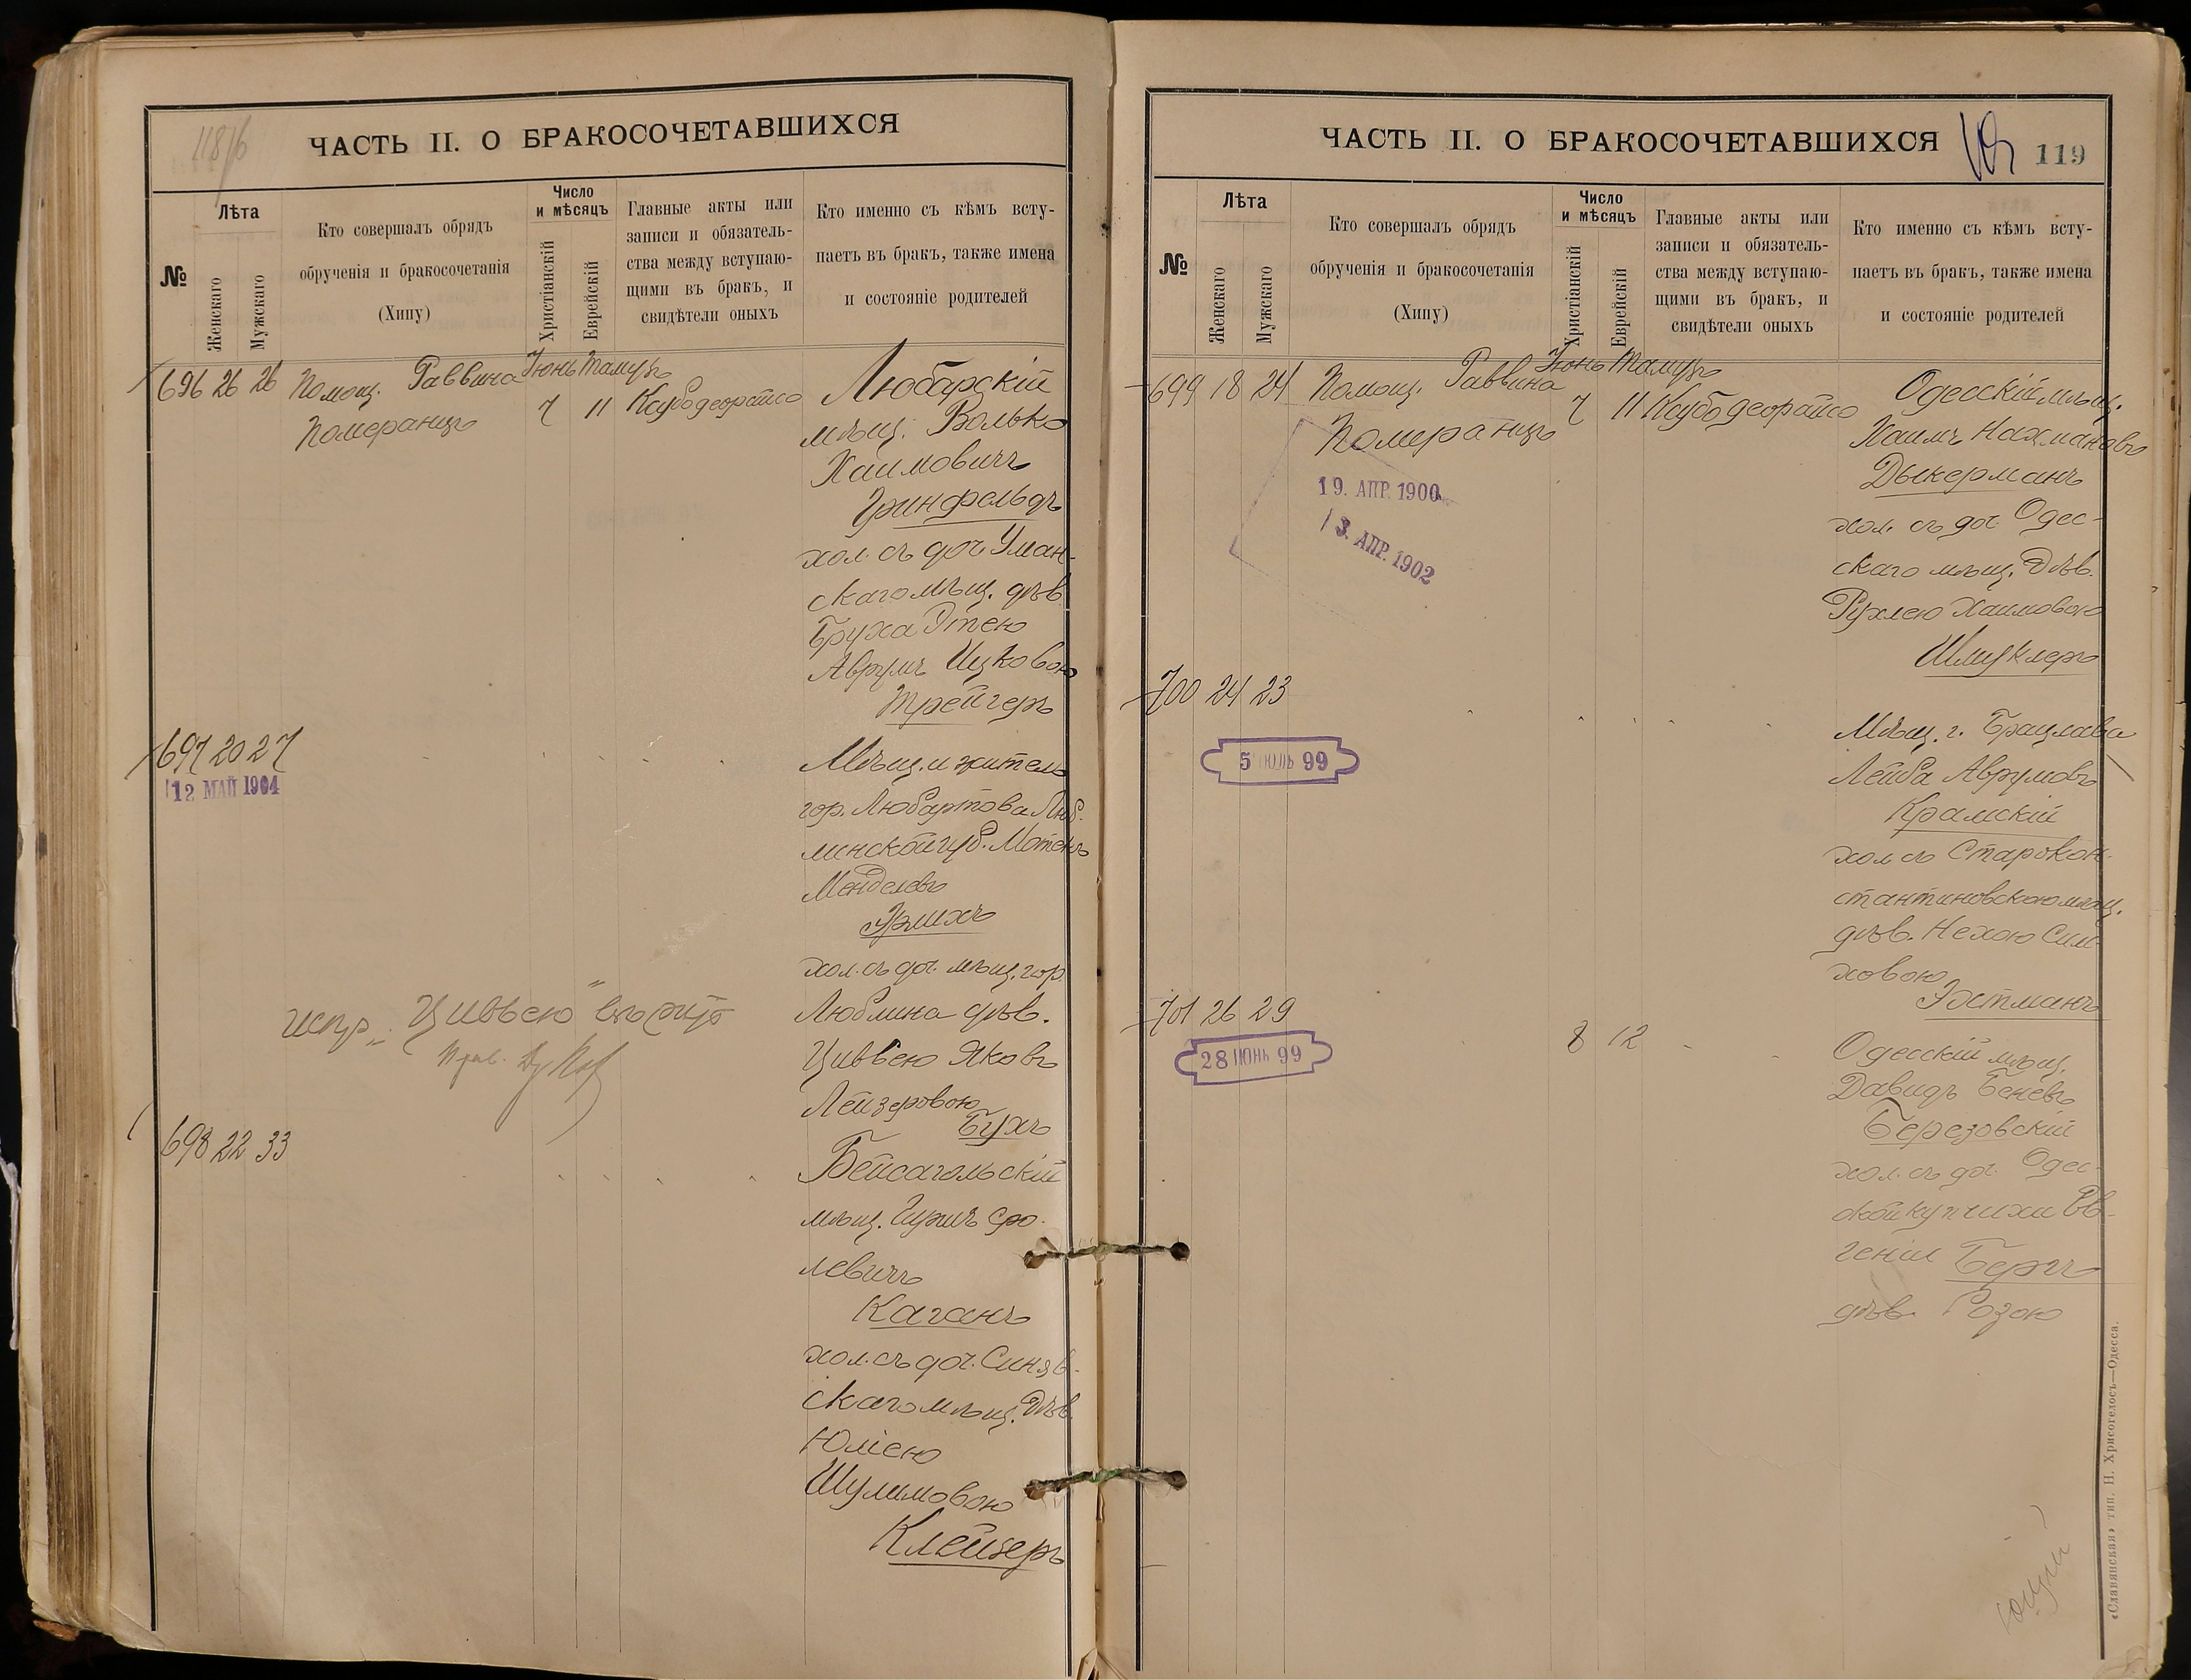 118/б
ЧАСТЬ II. О БРАКОСОЧЕТАВШИХСЯ
№
Лѣта
Женскаго
Мужскаго
Кто совершалъ обрядъ
обрученія и бракосочетанія
(Хипу)
Число
и мѣсяцъ
Христіанскій
Еврейскій
Главные акты или
записи и обязатель-
ства между вступаю-
щими въ бракъ, и
свидѣтели оныхъ
Кто именно съ кѣмъ всту-
паетъ въ бракъ, также имена
и состояніе родителей
696 26 26 Помощ. Раввина Іюнь Тамузъ
Померанцъ 7 11 Ксубодеорайсо
Любарскій
мѣщ. Волько
Хаимовичъ
Гринфельдъ
хол. съ доч. Уман-
скаго мѣщ. дѣв.
Бруха Этею
Аврумъ Ицковою
Трейгеръ
697 20 27
12 МАЙ 1904
Мѣщ. и житель
гор. Любартова Люб-
линской губ. Мотель
Менделевъ
Эрлихъ
хол. съ доч. мѣщ. гор.
Люблина дѣв.
Цивьею Яковъ
Лейзеровою
Бухъ
испр. „Цивьею"
698 22 33
Бейсагольскій
мѣщ. Гиршъ Сро-
левичъ
Каганъ
хол. съ доч. Синяв-
скаго мѣщ. Дѣв.
Юліею
Шулимовою
Клейзеръ
ЧАСТЬ II. О БРАКОСОЧЕТАВШИХСЯ
119
№
Лѣта
Женскаго
Мужскаго
Кто совершалъ обрядъ
обрученія и бракосочетанія
(Хипу)
Число
и мѣсяцъ
Христіанскій
Еврейскій
Главные акты или
записи и обязатель-
ства между вступаю-
щими въ бракъ, и
свидѣтели оныхъ
Кто именно съ кѣмъ всту-
паетъ въ бракъ, также имена
и состояніе родителей
699 18 24 Помощ. Раввина Іюнь Тамузъ
Померанцъ 7 11 Ксубодеорайсо
19. АПР. 1900
3. АПР. 1902
Одесскій мѣщ.
Хаимъ Нахмановъ
Дыкерманъ
хол. съ доч. Одес-
скаго мѣщ. Дѣв.
Рухлею Хаимовою
Шмуклеръ
700 24 23
5 ІЮЛЬ 99
Мѣщ. г. Брацлава
Лейба Аврумовъ
Крамскій
хол. съ Старокон-
стантиновскою мѣщ.
дѣв. Нехою Сим-
ховою
Эстманъ
701 26 29
28 ІЮНЬ 99
8 12
Одесскій мѣщ.
Давидъ Беневъ
Березовскій
хол. съ доч. Одес-
ской купчихи Ев-
геніи Бергъ
дѣв. Розою
«Славянская» тип. Н. Хрисогелосъ—Одесса.